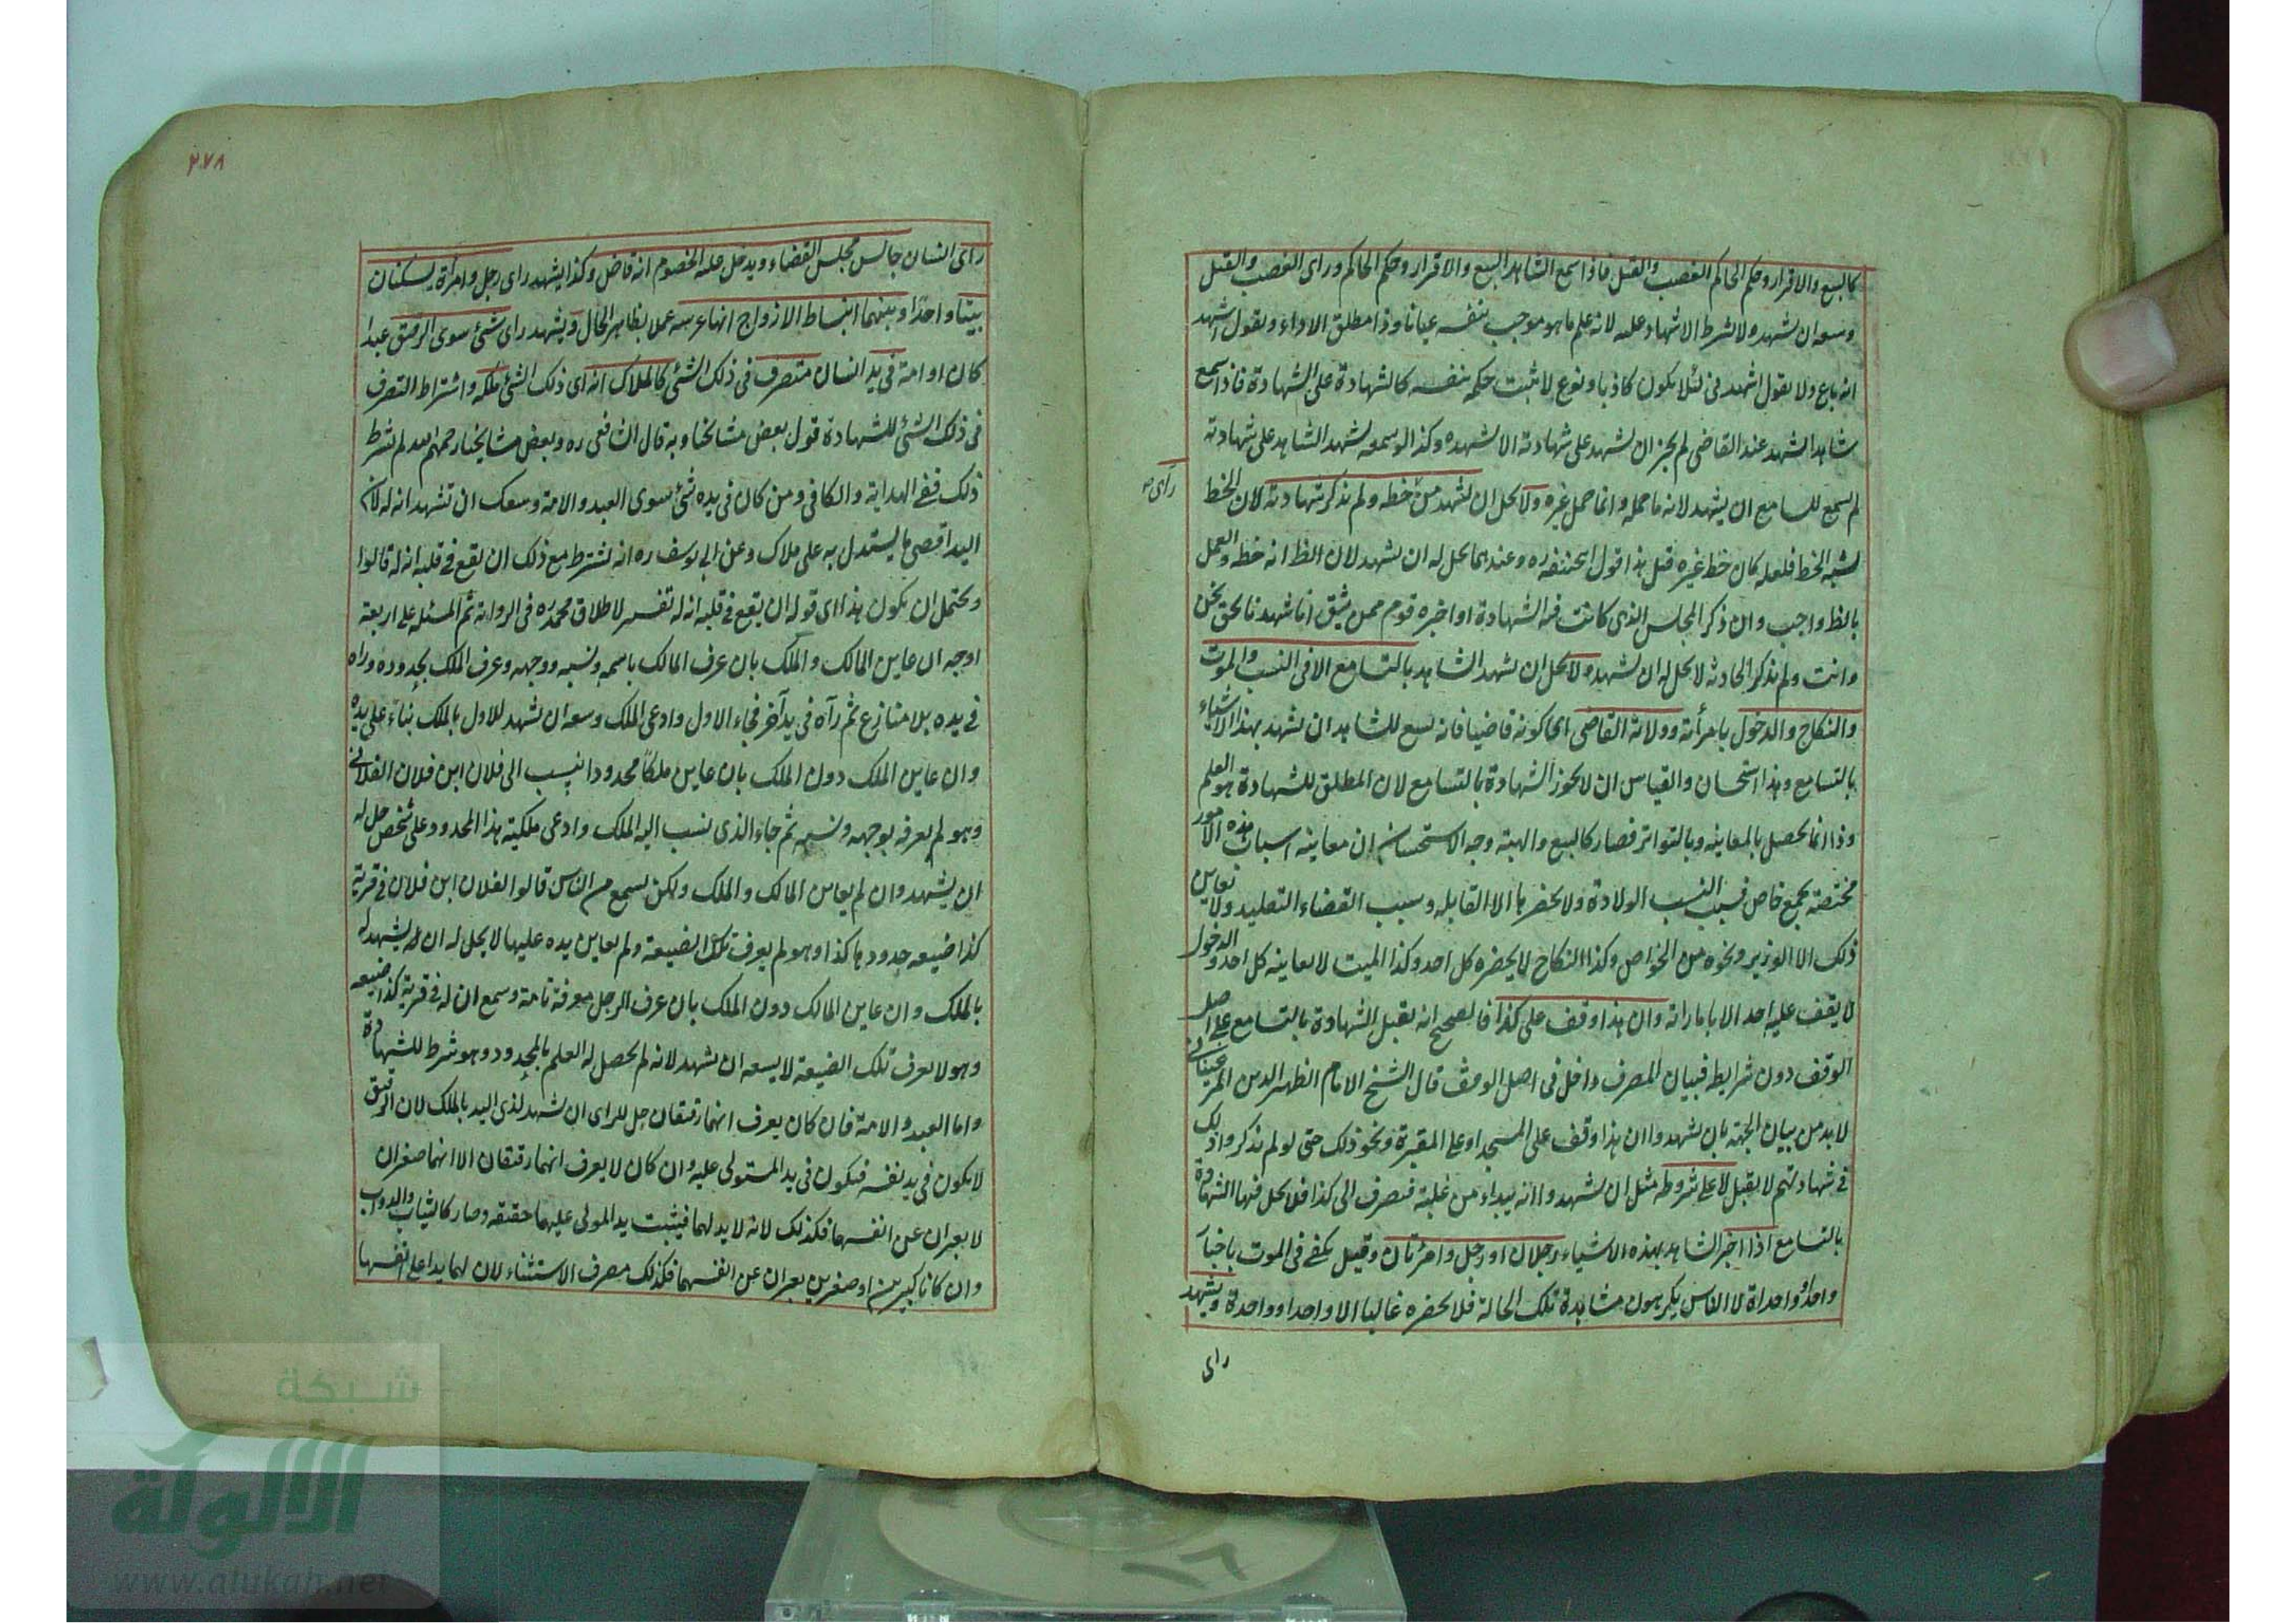 كالبيع والاقرار وحكم الحاكم الغصب والقتل فاذا سمع الشاهد البيع والاقرار وحكم الحاكم وراى الغصب والقتل
وسعه ان يشهد ه لا شرط الاشهاد عليه لانه علم ما هو موجب بنفسه عيانا وذا مطلق الاداء ويقول اشهد
انه باع ولا يقول اشهدنى لئلا يكون كاذبا ونوع لا يثبت حكمه بنفسه كالشهادة على الشهادة فاذا سمع
شاهدا يشهد عند القاضى لم يجز ان يشهد على شهادته الا يشهده وكذا لو سمعه يشهد الشاهد على شهادته
لم يسمع للسامع ان يشهد لانه ما حمله وانما حمل غيره ولا يحل ان يشهد من خطه ولم يذكر شهادته لان الخط
راى
يشبه الخط فلعله كان خط غيره قيل هذا قول ابحنيفه ره وعندهما يحل له ان يشهد لان الظ انه خطه والعمل
بالظ واجب وان ذكر المجلس الذى كانت فيه الشهادة او اخبره قوم ممن يثق انا شهدنا نحن
وانت ولم يذكر الحادثه لا يحل له ان يشهد ولا يحل ان يشهد الشاهد بالتسامع الا فى النسب والموت
والنكاح والدخول بامرأته وولاية القاضى اى كونه قاضيا فانه يسع للشاهد ان يشهد بهذا الاشياء
بالتسامع وهذا استحسان والقياس ان لا يجوز الشهادة بالتسامع لان المطلق للشهادة هو العلم
وذا انما يحصل بالمعاينه وبالتواتر فصار كالبيع والهبة وجه الاستحسان ان معاينه اسباب هذه الامور
مختصة بجمع خاص فسبب النسب الولادة ولا يحضرها الا القابله وسبب القضاء التقليد ولا يعاين
ذلك الا الوزير ونحوه من الخواص وكذا النكاح لا يحضره كل احد وكذا الميت لا يعاينه كل احد والدخول
لا يقف عليه احد الا باماراته وان هذا وقف على كذا فالصحيح انه يقبل الشهادة بالتسامع على اصل
الوقف دون شرايطه فبيان المصرف داخل فى اصل الوقف قال الشيخ الامام الظهير الدين المرغينانى
لا بد من بيان الجهة بان يشهدوا ان هذا وقف على المسجد او على المقبرة ونحو ذلك حتى لو لم يذكروا ذلك
فى شهادتهم لا يقبل لا على شروطه مثل ان يشهدوا انه يبداء من غلبته فيصرف الى كذا فلا يحل فيها الشهادة
بالتسامع اذا اخبر الشاهد بهذه الاشياء رجلان او رجل وامرئتان وقيل يكفى فى الموت باخبار
واحد او واحداة لا الناس يكرهون مشاهدة تلك الحالة فلا يحضره غالبا الا واحدا وواحدة ويشهد
راى
٢٧٨
راى انسان جالس مجلس القضاء ويدخل عليه الخصوم انه قاض وكذا يشهد راى رجل وامرأة يسكنان
بيتا واحدا وبينهما انبساط الازواج انها عرسه عملا بظاهر الحال ويشهد راى شئ سوى الرقيق عبدا
كان او امة فى يد انسان متصرف فى ذلك الشئ كالملاك انه اى ذلك الشئ ملكه واشتراط التصرف
فى ذلك الشئ للشهادة قول بعض مشائخنا وبه قال الشافعى ره وبعض مشايخنا رحمهم الله لم يشرط
ذلك ففى الهداية والكافى ومن كان فى يده شئ سوى العبد والامة وسعك ان تشهد انه له لان
اليد اقصى ما يستدل به على ملاك وعن ابى يوسف ره انه يشترط مع ذلك ان يقع فى قلبه انه له قالوا
ويحتمل ان يكون هذا اى قوله ان يقع فى قلبه انه له تفسير لاطلاق محمد ره فى الرواية ثم المسئله على اربعة
اوجه ان عاين المالك والملك بان عرف المالك باسمه ونسبه ووجهه وعرف الملك بحدوده وراه
فى يده بلا منازع ثم رآه فى يد آخر فجاء الاول وادعى الملك وسعه ان يشهد للاول بالملك بناء على يده
وان عاين الملك دون الملك بان عاين ملكا محدودا ينسب الى فلان ابن فلان الفلانى
وهو لم يعرفه بوجهه ونسبه ثم جاء الذى نسب اليه الملك وادعى ملكية هذا المحدود على شخص حل له
ان يشهد وان لم يعاين المالك والملك ولكن يسمع من الناس قالوا لفلان ابن فلان فى قرية
كذا ضيعه حدودها كذا وهو لم يعرف تلك الضيعة ولم يعاين يده عليها لا يحل له ان يشهد له
بالملك وان عاين المالك دون الملك بان عرف الرجل معرفة تامة وسمع ان له فى قرية كذا ضيعه
وهو لا يعرف تلك الضيعة لا يسعه ان يشهد لانه لم يحصل له العلم بالمحدود وهو شرط للشهادة
واما العبد والامة فان كان يعرف انهما رقيقان حل للراى ان يشهد لذى اليد بالملك لان الرقيق
لا يكون فى يد نفسه فيكون فى يد المستولى عليه وان كان لا يعرف انهما رقيقان الا انهما صغيران
لا يعبران عن انفسهما فكذلك لانه لا يد لهما فيثبت يد المولى عليهما حقيقه وصار كالثياب والدواب
وان كانا كبيرين او صغيرين يعبران عن انفسهما فكذلك مصرف الاستثناء لان لهما يدا على انفسهما
شبكة
الألوكة
www.alukah.net